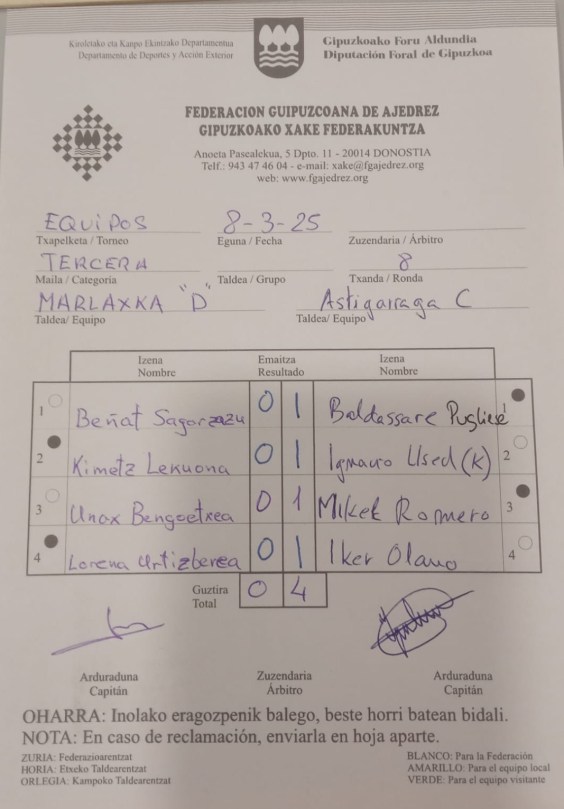 Kiroletako eta Kanpo Ekintzako Departamentua
Departamento de Deportes y Acción Exterior
Gipuzkoako Foru Aldundia
Diputación Foral de Gipuzkoa
FEDERACION GUIPUZCOANA DE AJEDREZ
GIPUZKOAKO XAKE FEDERAKUNTZA
Anoeta Pasealekua, 5 Dpto. 11 - 20014 DONOSTIA
Telf.: 943 47 46 04 - e-mail: xake@fgajedrez.org
web: www.fgajedrez.org
EQUIPOS 8-3-25
Txapelketa / Torneo Eguna / Fecha Zuzendaria / Árbitro
TERCERA 8
Maila / Categoria Taldea / Grupo Txanda / Ronda
MARLAXKA "D" Astigarraga C
Taldea/ Equipo Taldea/ Equipo
Izena Emaitza Izena
Nombre Resultado Nombre
1 Beñat Sagarzazu 0 1 Baldassare Pugliese
2 Kimetz Lekuona 0 1 Ignacio Used (K) 2
3 Unax Bengoetxea 0 1 Mikel Romero 3
4 Lorena Urtizberea 0 1 Iker Olano 4
Guztira 0 4
Total
Arduraduna Zuzendaria Arduraduna
Capitán Árbitro Capitán
OHARRA: Inolako eragozpenik balego, beste horri batean bidali.
NOTA: En caso de reclamación, enviarla en hoja aparte.
ZURIA: Federazioarentzat BLANCO: Para la Federación
HORIA: Etxeko Taldearentzat AMARILLO: Para el equipo local
ORLEGIA: Kampoko Taldearentzat VERDE: Para el equipo visitante